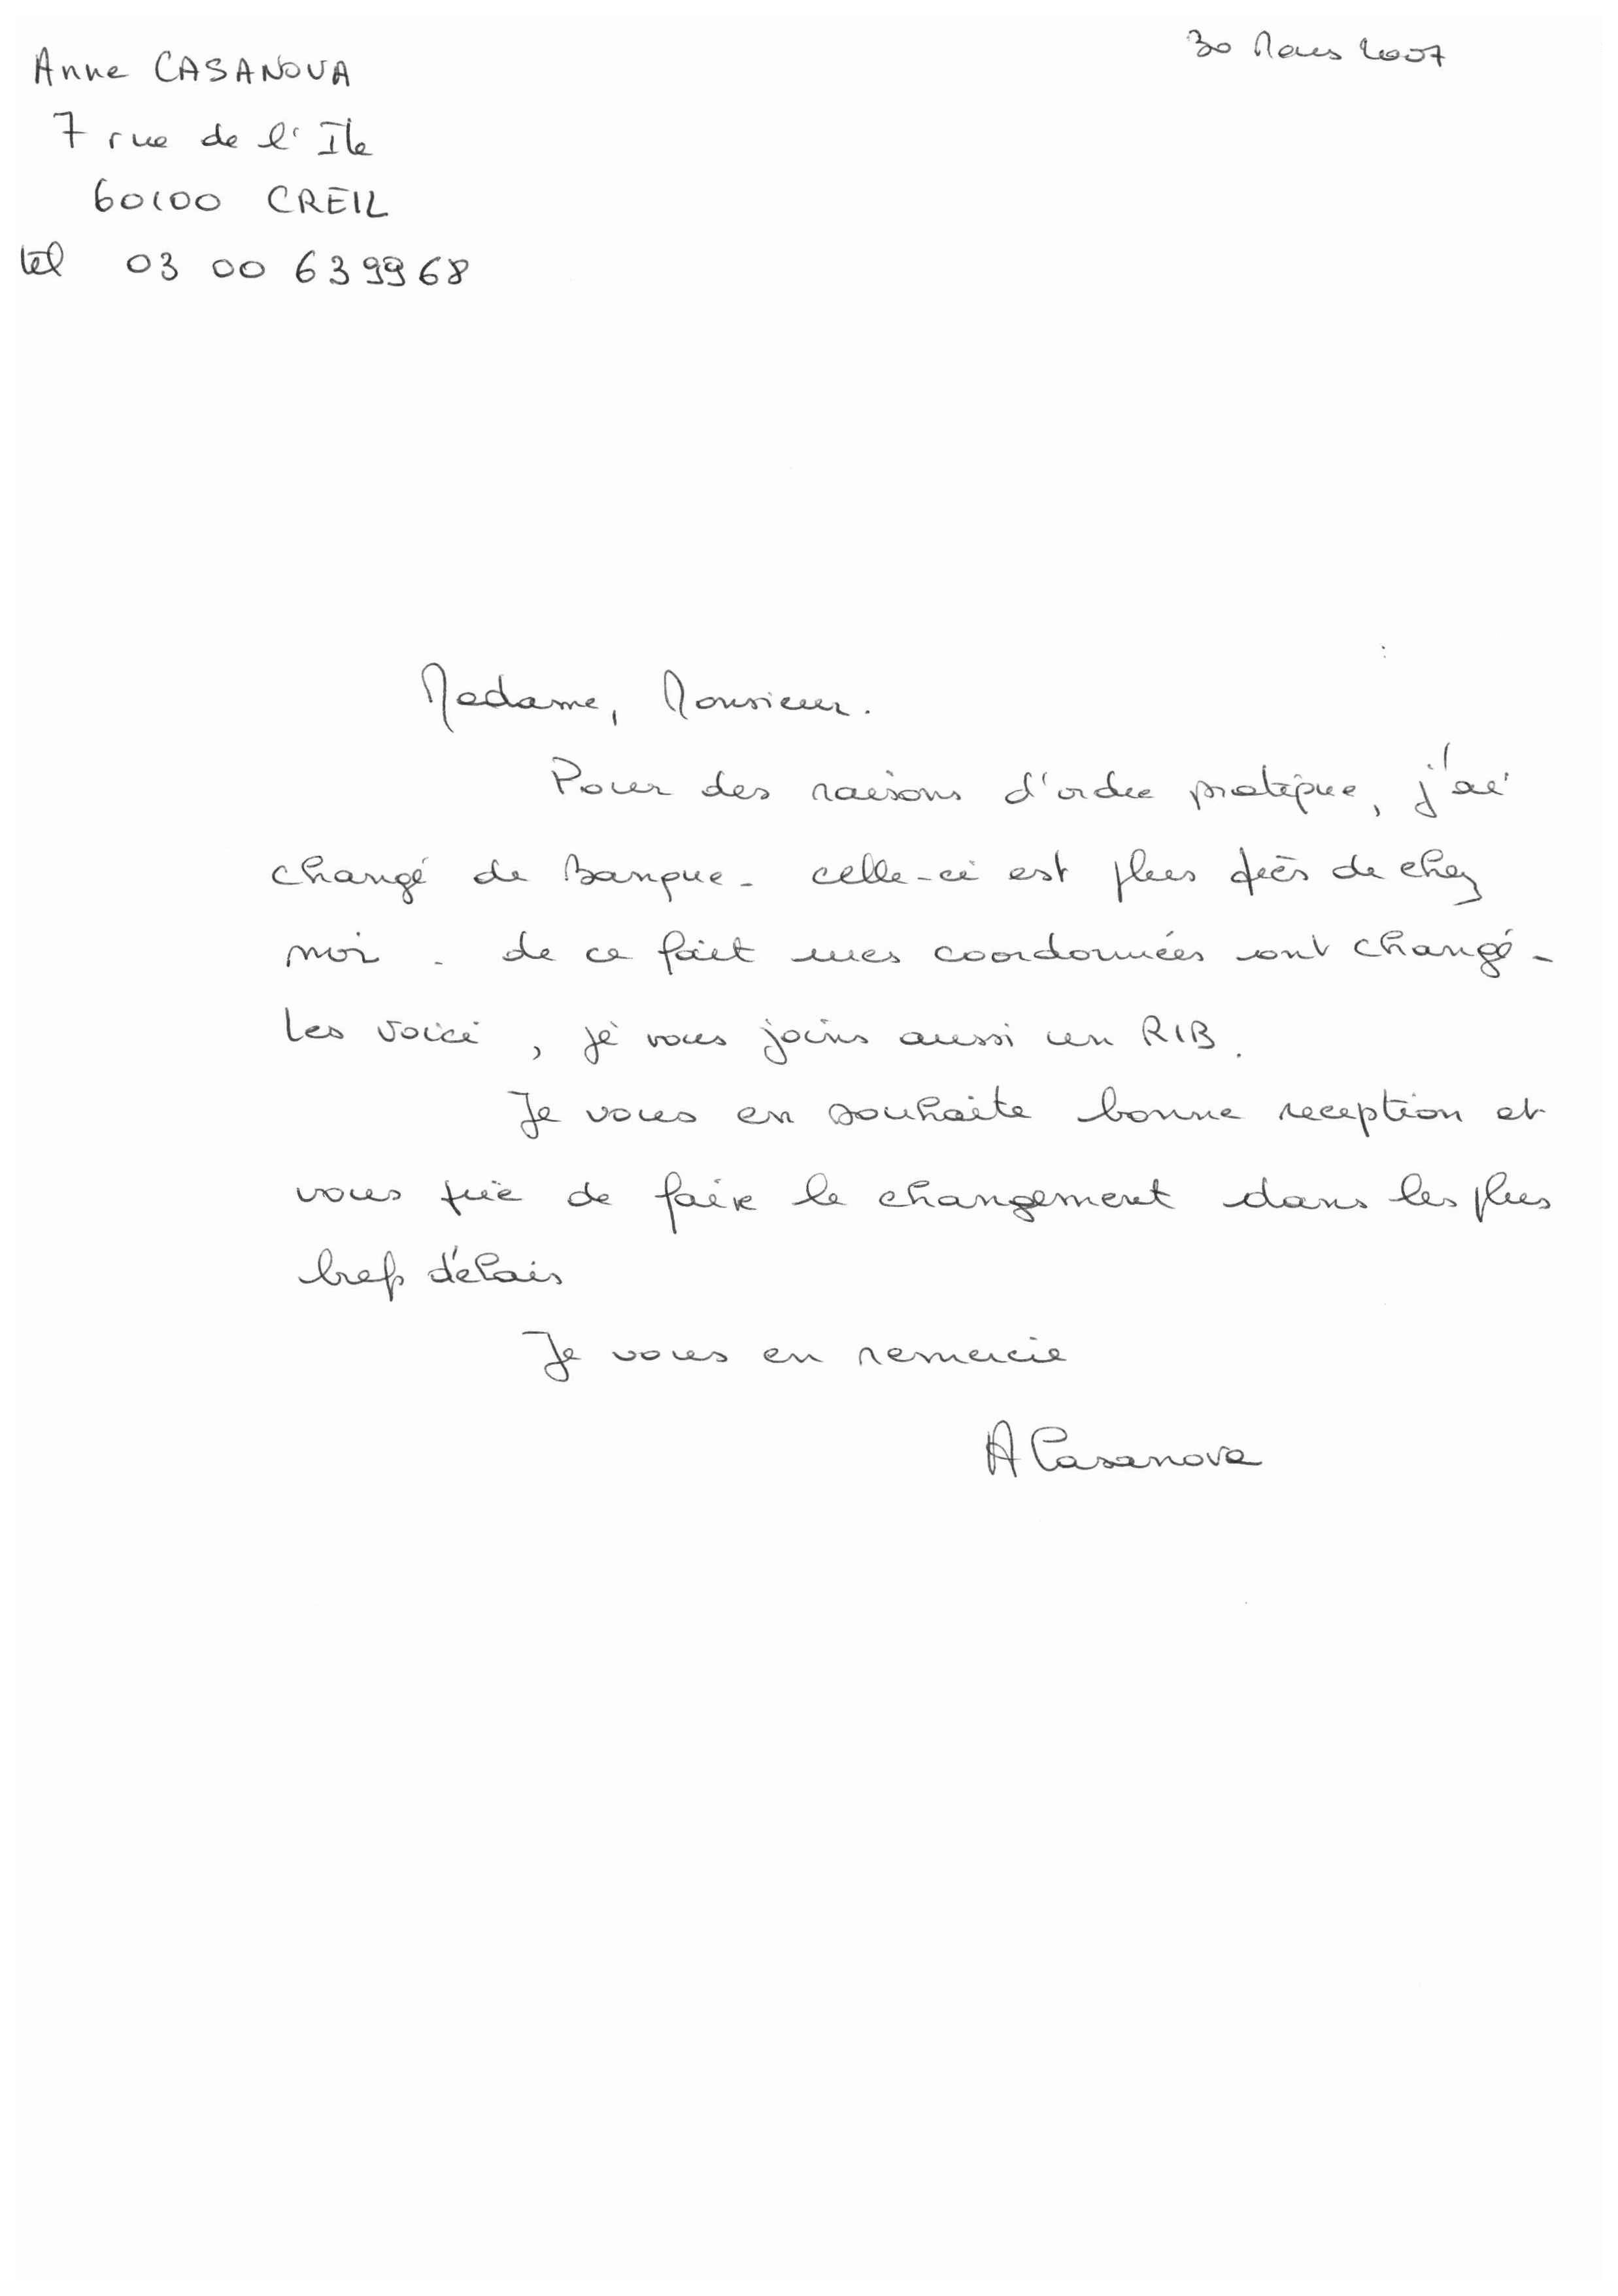 Anne CASANOVA
30 Mars 2007
7 rue de l'Ile
60100 CREIL
tel 03 00 639968
Madame, Monsieur.
Pour des raisons d'ordre pratique, j'ai
changé de Banque - celle-ci est plus près de chez
moi - de ce fait mes coordonnées ont changé -
Les voici, je vous joins aussi un RIB.
Je vous en souhaite bonne reception et
vous prie de faire le changement dans les plus
brefs délais
Je vous en remercie
A Casanova